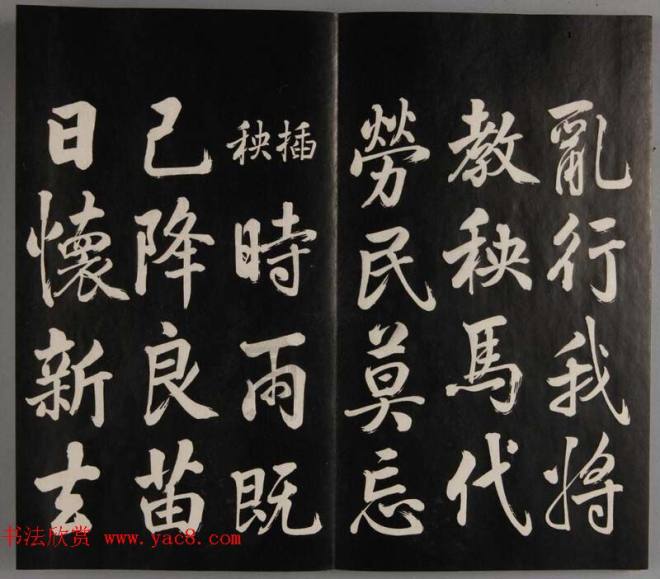 亂行我將
教秧馬代
勞民莫忘
插秧
時雨既
已降良苗
日懷新去
书法欣赏 www.yac8.com